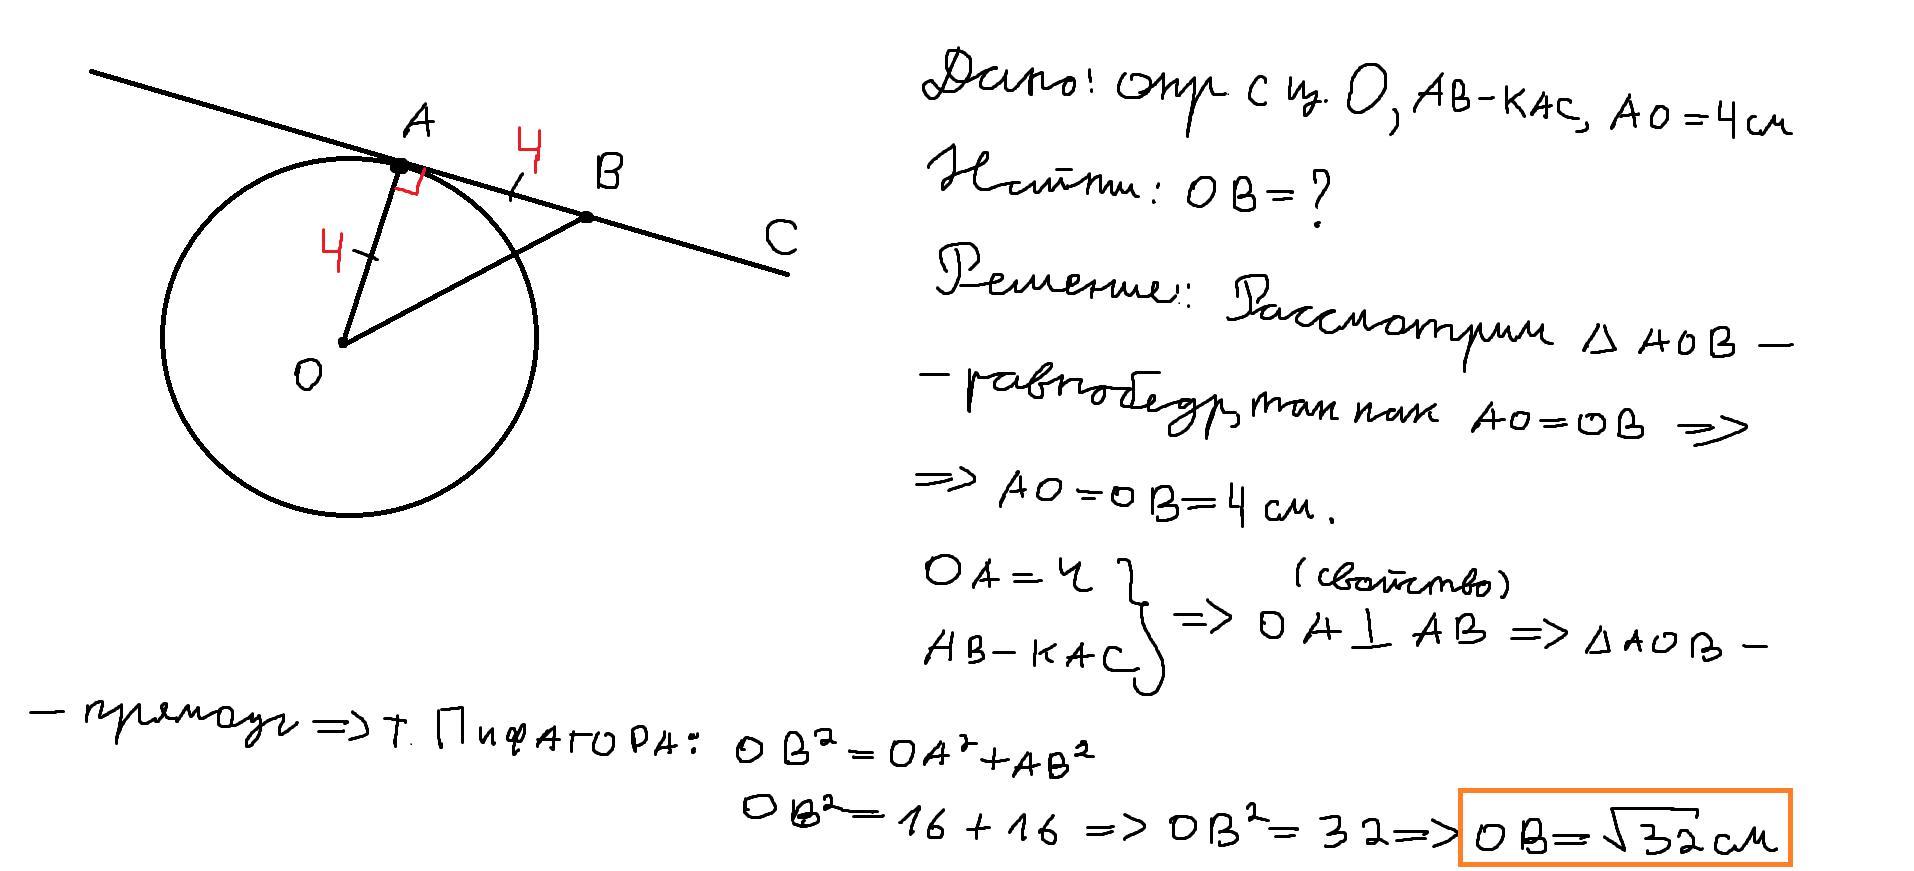 A
4
B
C
4
O
Дано: окр с ц. О, AB-КАС, AO=4см
Найти: OB=?
Решение: Рассмотрим △ AOB –
– равнобедр, так как AO=OB =>
=> AO=OB=4 см.
OA=4 } => (свойство)
AB-КАС } OA⊥AB => △AOB –
– прямоуг => т. ПИФАГОРА: OB²=OA²+AB²
OB²=16+16 => OB²=32=> OB=√32 см